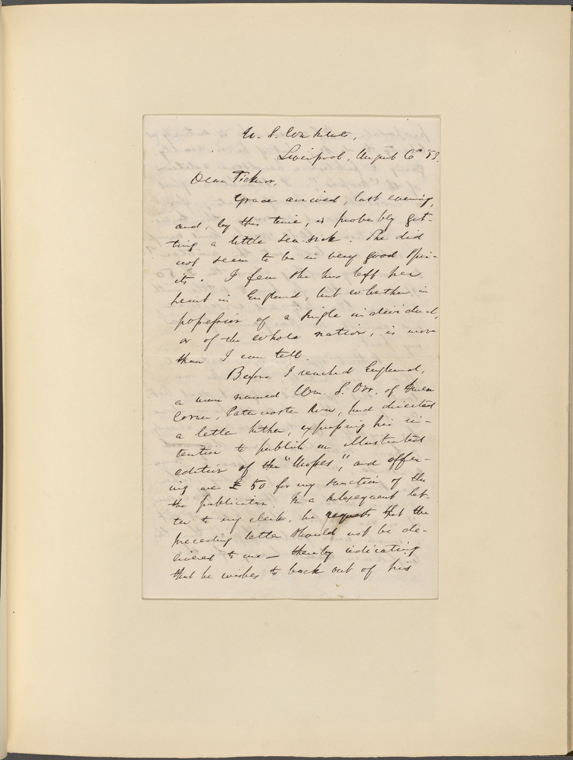 U. S. Consulate,
Liverpool, August 6th '53.
Dear Ticknor,
Grace arrived, last evening,
and, by this time, is probably get-
ting a little sea-sick. She did
not seem to be in very good spir-
its. I fear she has left her
heart in England, but whether in
possession of a single individual,
or of the whole nation, is more
than I can tell.
Before I reached England,
a man named Wm. S. Orr, of Amen
Corner, Paternoster Row, had directed
a letter hither, expressing his in-
tention to publish an illustrated
edition of the "Mosses," and offer-
ing me £50 for my sanction of the
the publication. In a subsequent let-
ter to my clerk, he requests that the
preceding letter should not be de-
livered to me—thereby indicating
that he wishes to back out of his